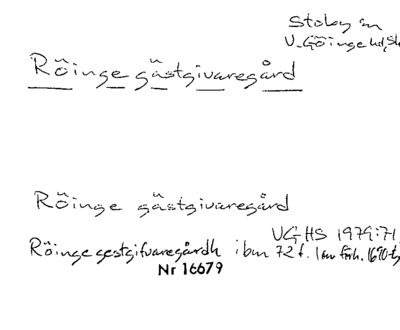 Stoby sn
V. Göinge hd, Sk
Röinge gästgivaregård
Röinge gästgivaregård
VGHS 1979:71
Röinge gestgifvaregårdh ibm 72 f. 1690-t
Nr 16679